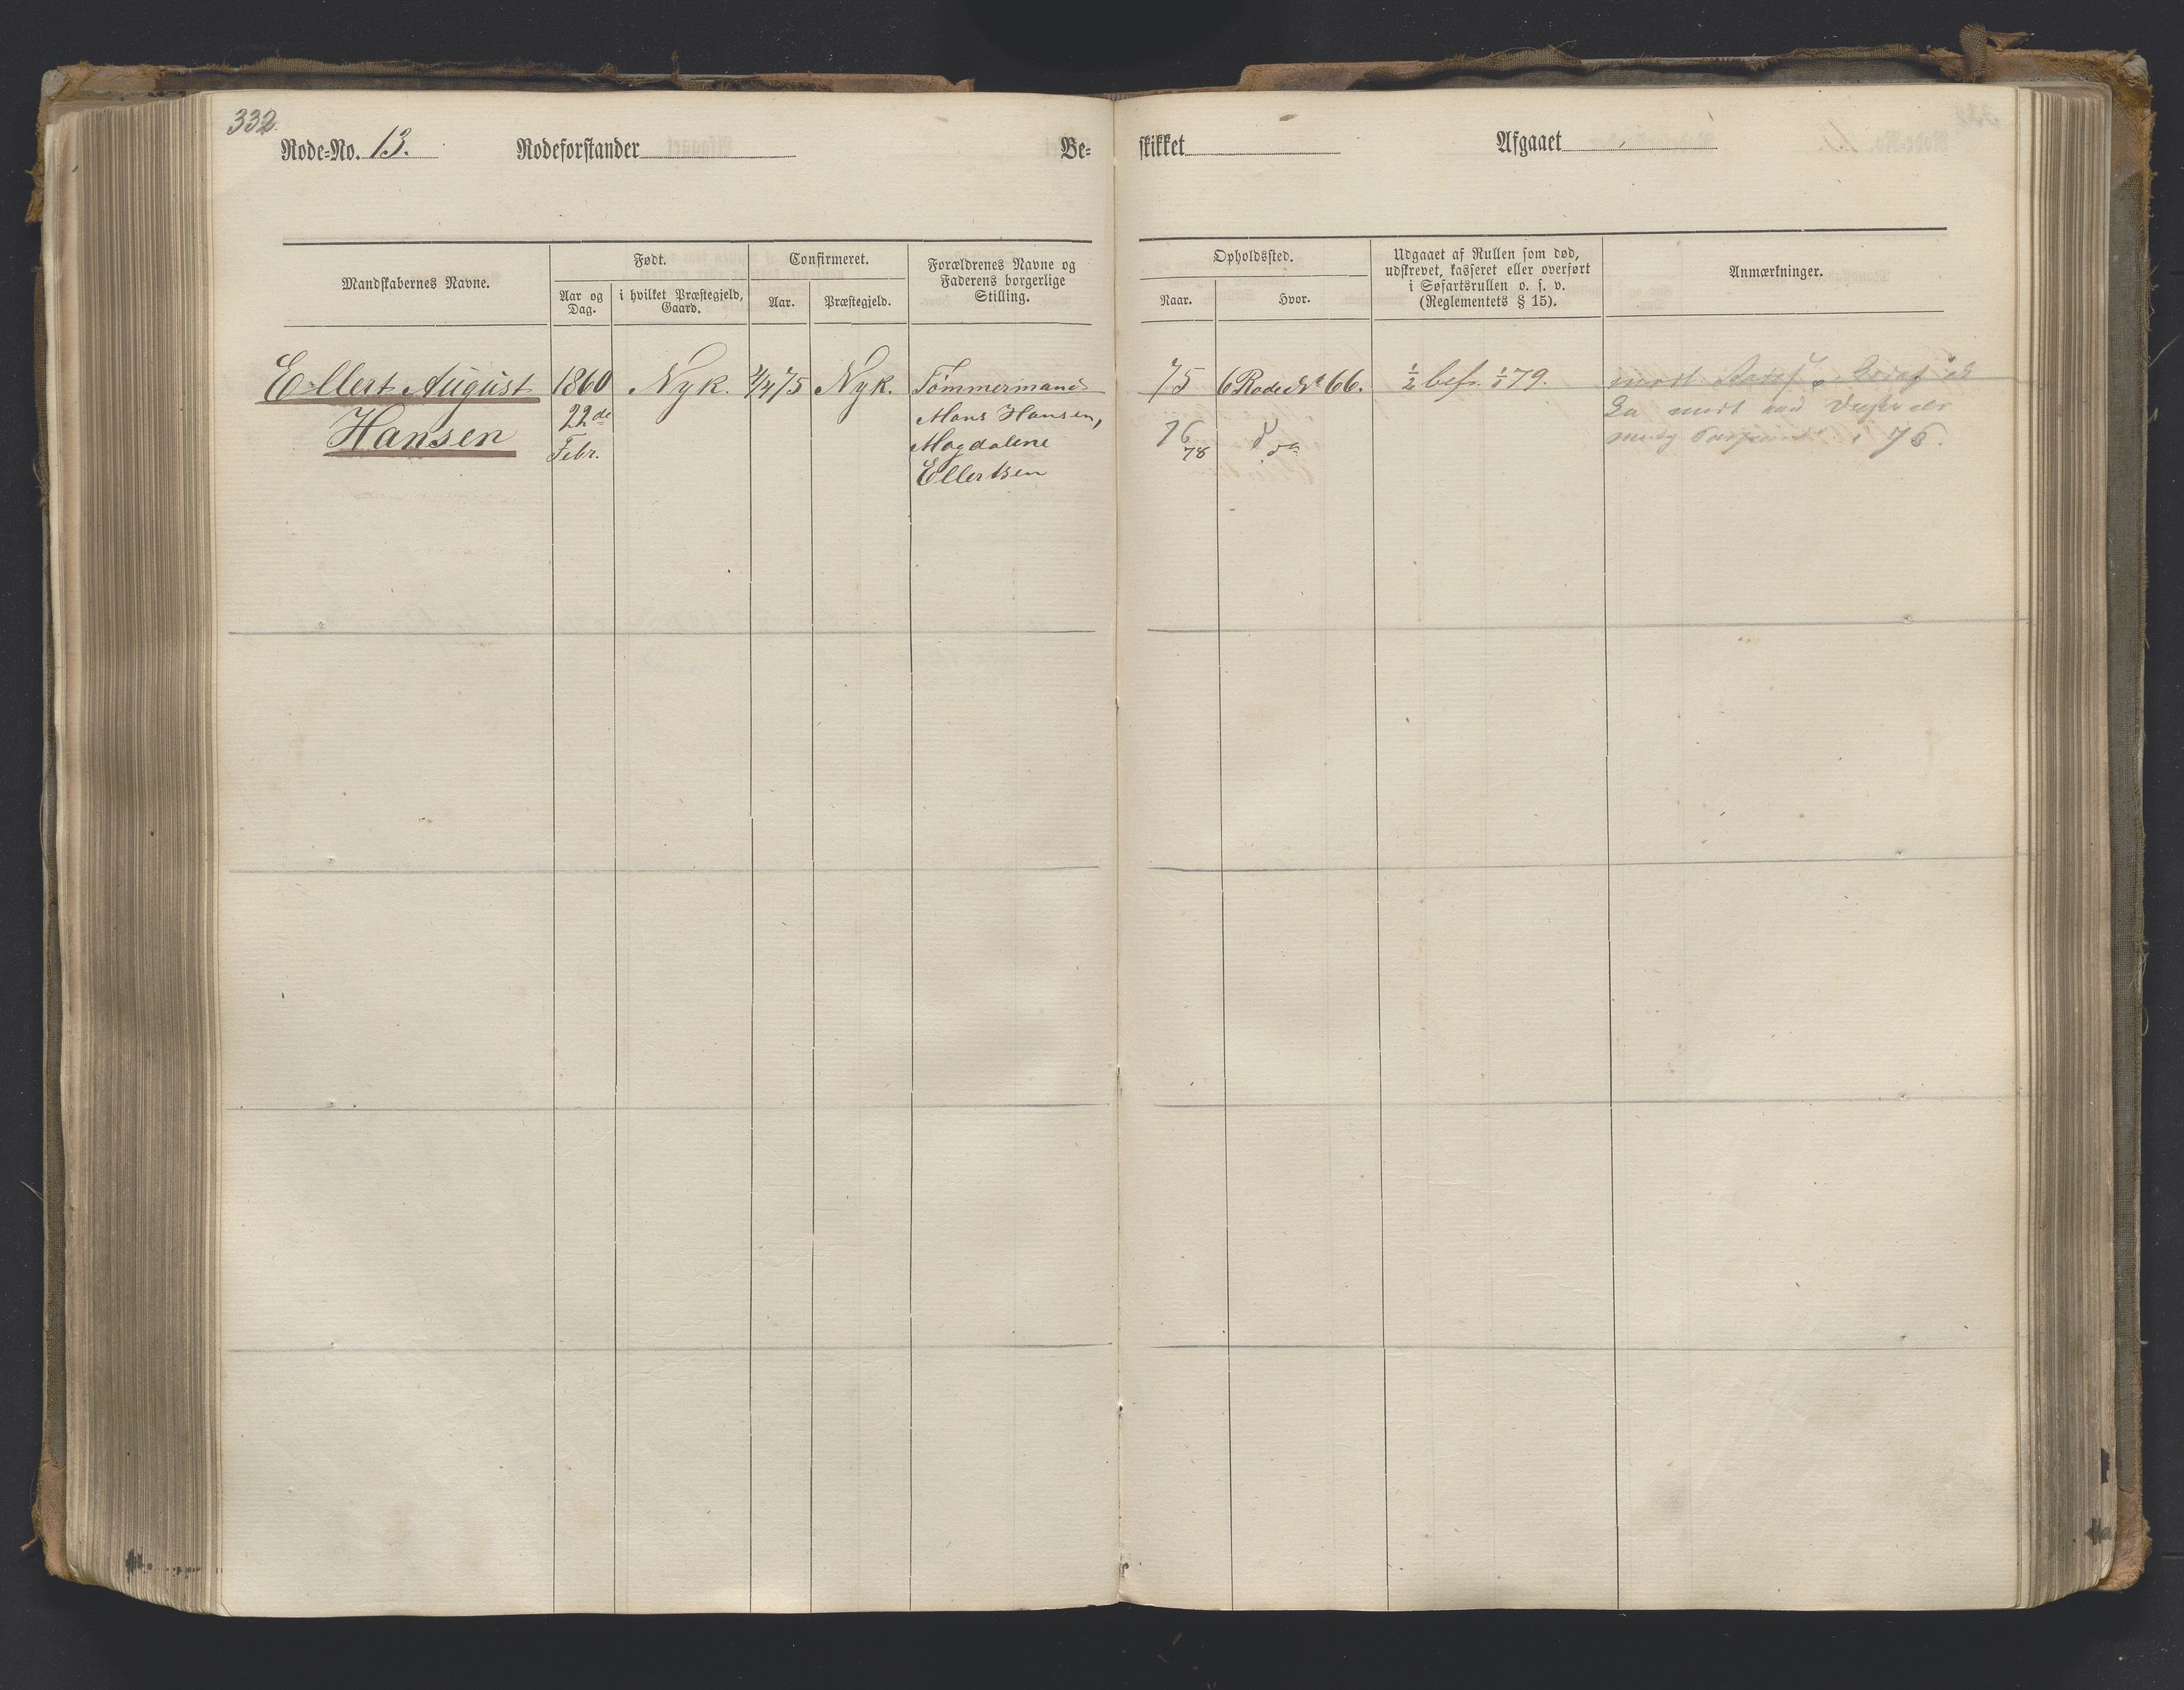 332.
Rode=No. 13. Rodeforstander Be= skikket Afgaaet
Mandskabernes Navne.
Født.
Aar og Dag.
i hvilket Præstegjeld, Gaard.
Confirmeret.
Aar.
Præstegjeld.
Forældrenes Navne og
Faderens borgerlige
Stilling.
Opholdssted.
Naar.
Hvor.
Udgaaet af Rullen som død,
udskrevet, kasseret eller overført
i Søfartsrullen o. s. v.
(Reglementets § 15).
Anmærkninger.
Ellert August
Hansen
1860
22de
Febr.
Nyk.
4/4 75
Nyk.
Tømmermand
Mons Hansen,
Magdalene
Ellertsen
75 6 Rode No 66.
76
78
do
1/2 bef. 1/1 79.
i 76.